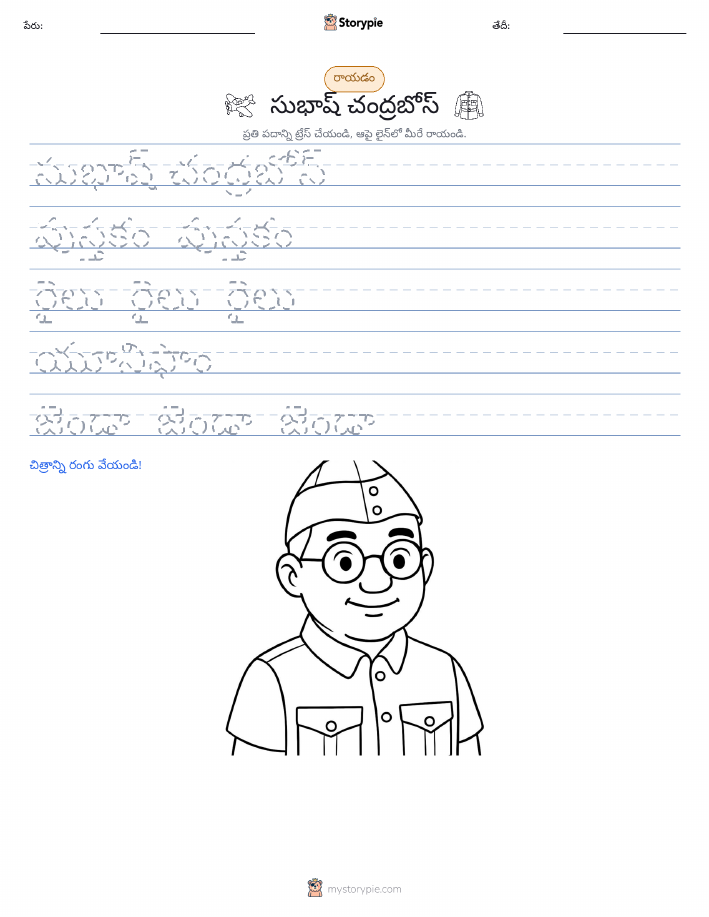 పేరు:
Storypie
తేదీ:
రాయడం
సుభాష్ చంద్రబోస్
ప్రతి పదాన్ని ట్రేస్ చేయండి, ఆపై లైన్‌లో మీరే రాయండి.
సుభాష్ చంద్రబోస్
పుస్తకం పుస్తకం
రైలు రైలు రైలు
యూనిఫాం
జెండా జెండా జెండా
చిత్రాన్ని రంగు వేయండి!
mystorypie.com